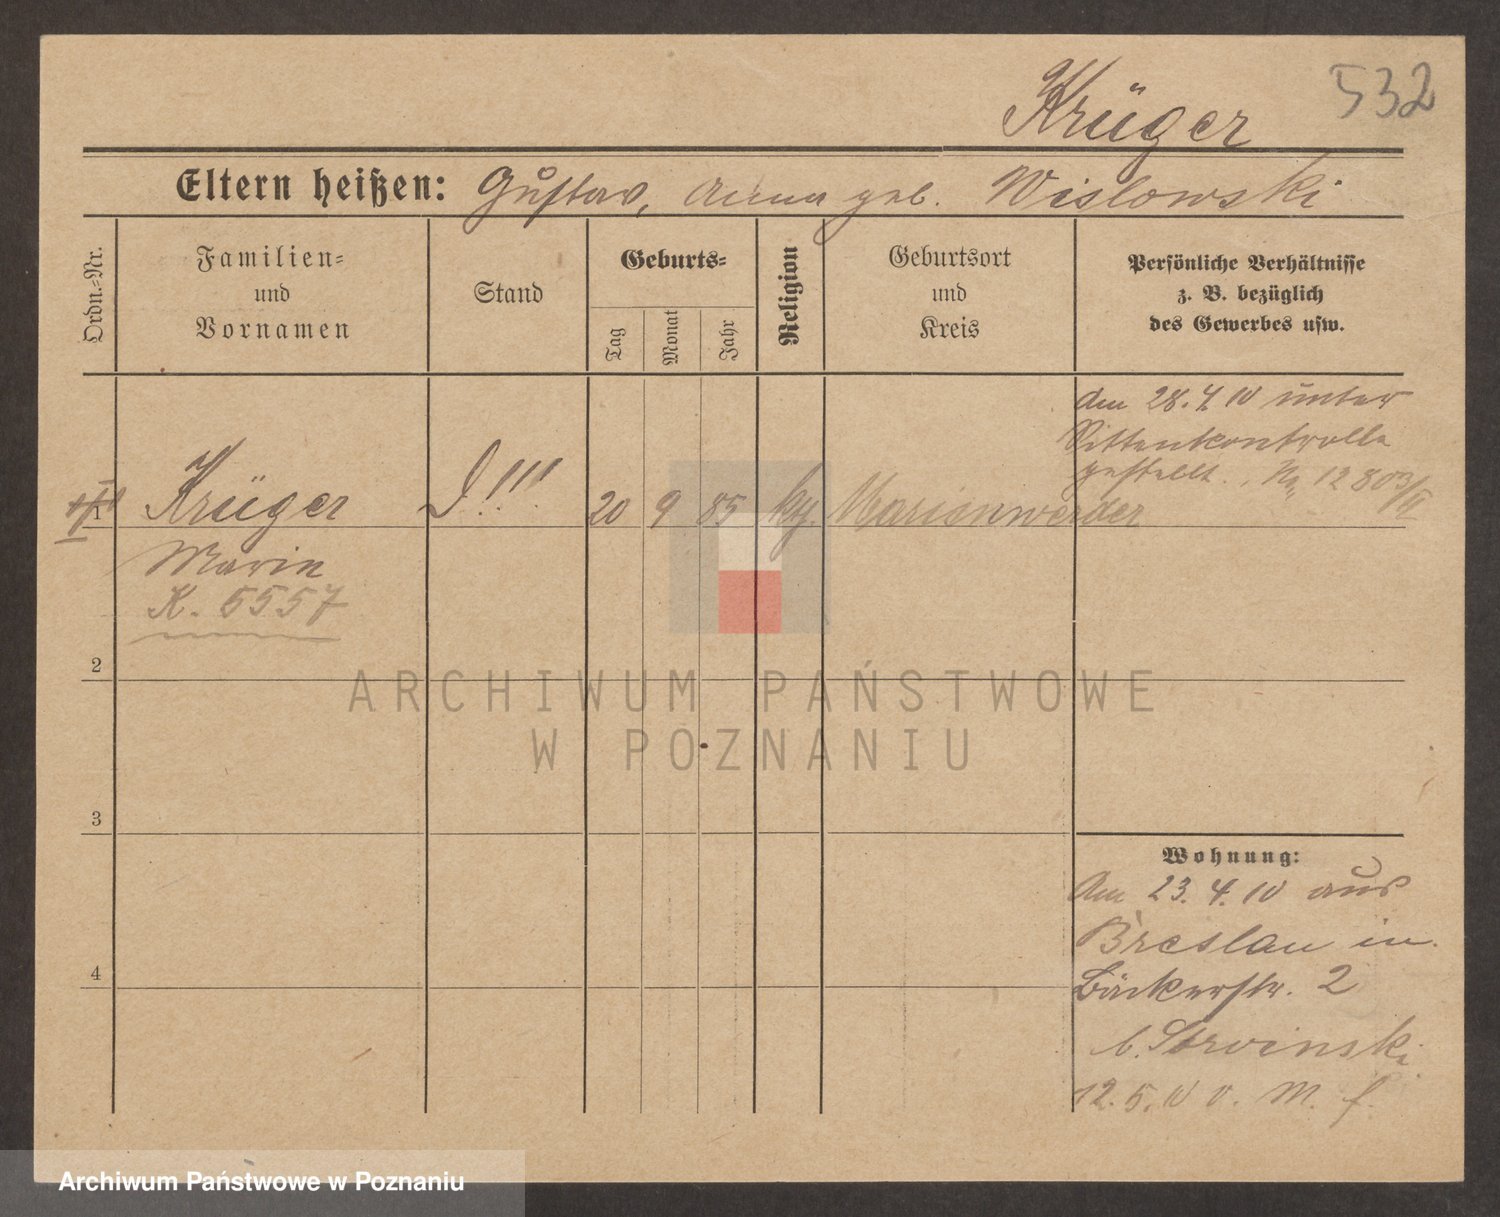 532
Krüger
Eltern heißen: Gustav, Anna geb. Wislowski
Ordn.-Nr.
Familien-
und
Vornamen
Stand
Geburts-
Tag
Monat
Jahr
Religion
Geburtsort
und
Kreis
Persönliche Verhältnisse
z. B. bezüglich
des Gewerbes usw.
am 28. 4. 10 unter
Sittenkontrolle
gestellt.
1 Krüger 20 9 85 Marienwerder
Marie
K. 5557
2
ARCHIWUM PAŃSTWOWE
W POZNANIU
3
Wohnung:
Am 23. 4. 10 aus
Breslau in
Bäckerstr. 2
4
12. 5. 10 v. M. f.
Archiwum Państwowe w Poznaniu